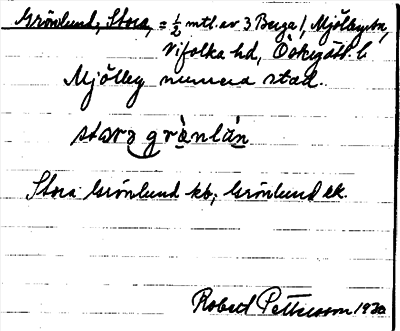 Grönlund, Stora, = ½ mtl. av 3 Berga /, Mjölby sn,
Vifolka hd, Östergötl. l.
Mjölby numera stad.
stara grànlún
Stora Grönlund kb, Grönlund ek.
Robert Pettersson 1930